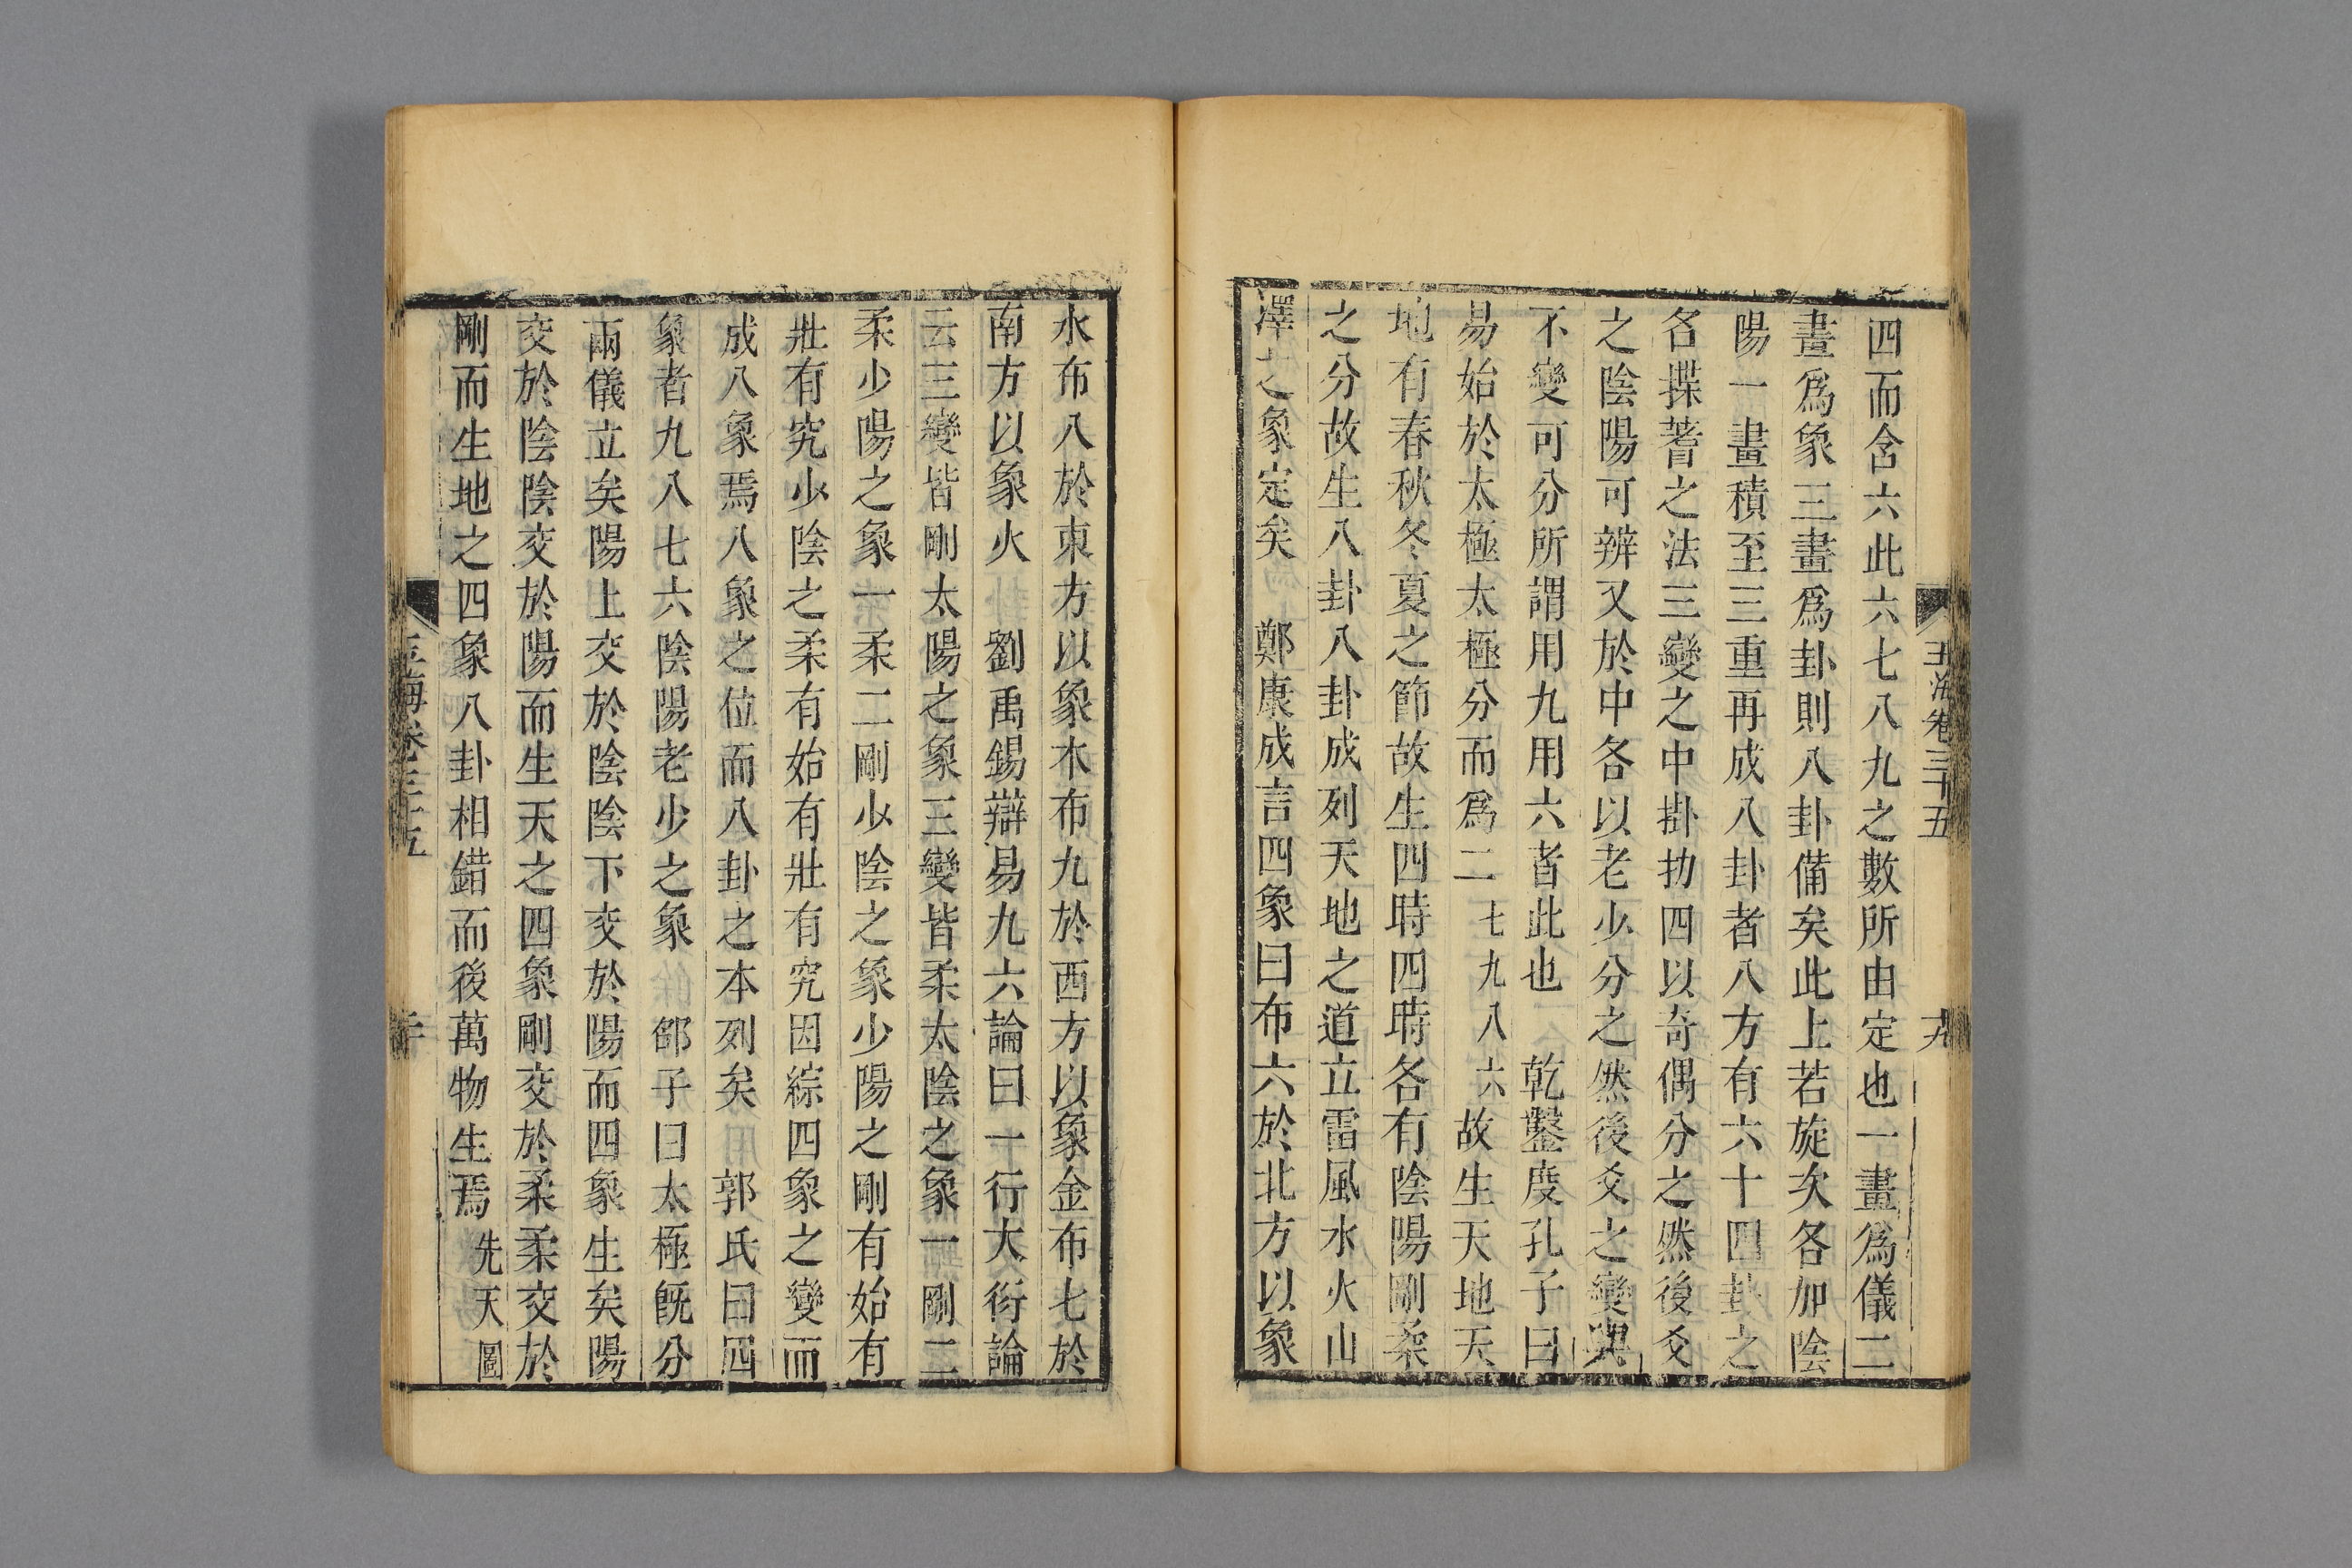 玉海卷三十五
十九
四而含六此六七八九之數所由定也一畫爲儀二
畫爲象三畫爲卦則八卦備矣此上若旋次各加陰
陽一畫積至三重再成八卦者八方有六十四卦之
名揲蓍之法三變之中掛扐四以奇偶分之然後爻
之陰陽可辨又於中各以老少分之然後爻之變與
不變可分所謂用九用六者此也　乾鑿度孔子曰
易始於太極太極分而爲二七九八六故生天地天
地有春秋冬夏之節故生四時四時各有陰陽剛柔
之分故生八卦八卦成列天地之道立雷風水火山
澤之象定矣　鄭康成言四象曰布六於北方以象
水布八於東方以象木布九於西方以象金布七於
南方以象火　劉禹錫辯易九六論曰一行大衍論
云三變皆剛太陽之象三變皆柔太陰之象一剛二
柔少陽之象一柔二剛少陰之象少陽之剛有始有
壯有究少陰之柔有始有壯有究因綜四象之變而
成八象焉八象之位而八卦之本列矣　郭氏曰四
象者九八七六陰陽老少之象　邵子曰太極旣分
兩儀立矣陽上交於陰陰下交於陽而四象生矣陽
交於陰陰交於陽而生天之四象剛交於柔柔交於
剛而生地之四象八卦相錯而後萬物生焉先天圖
玉海卷三十五
二十